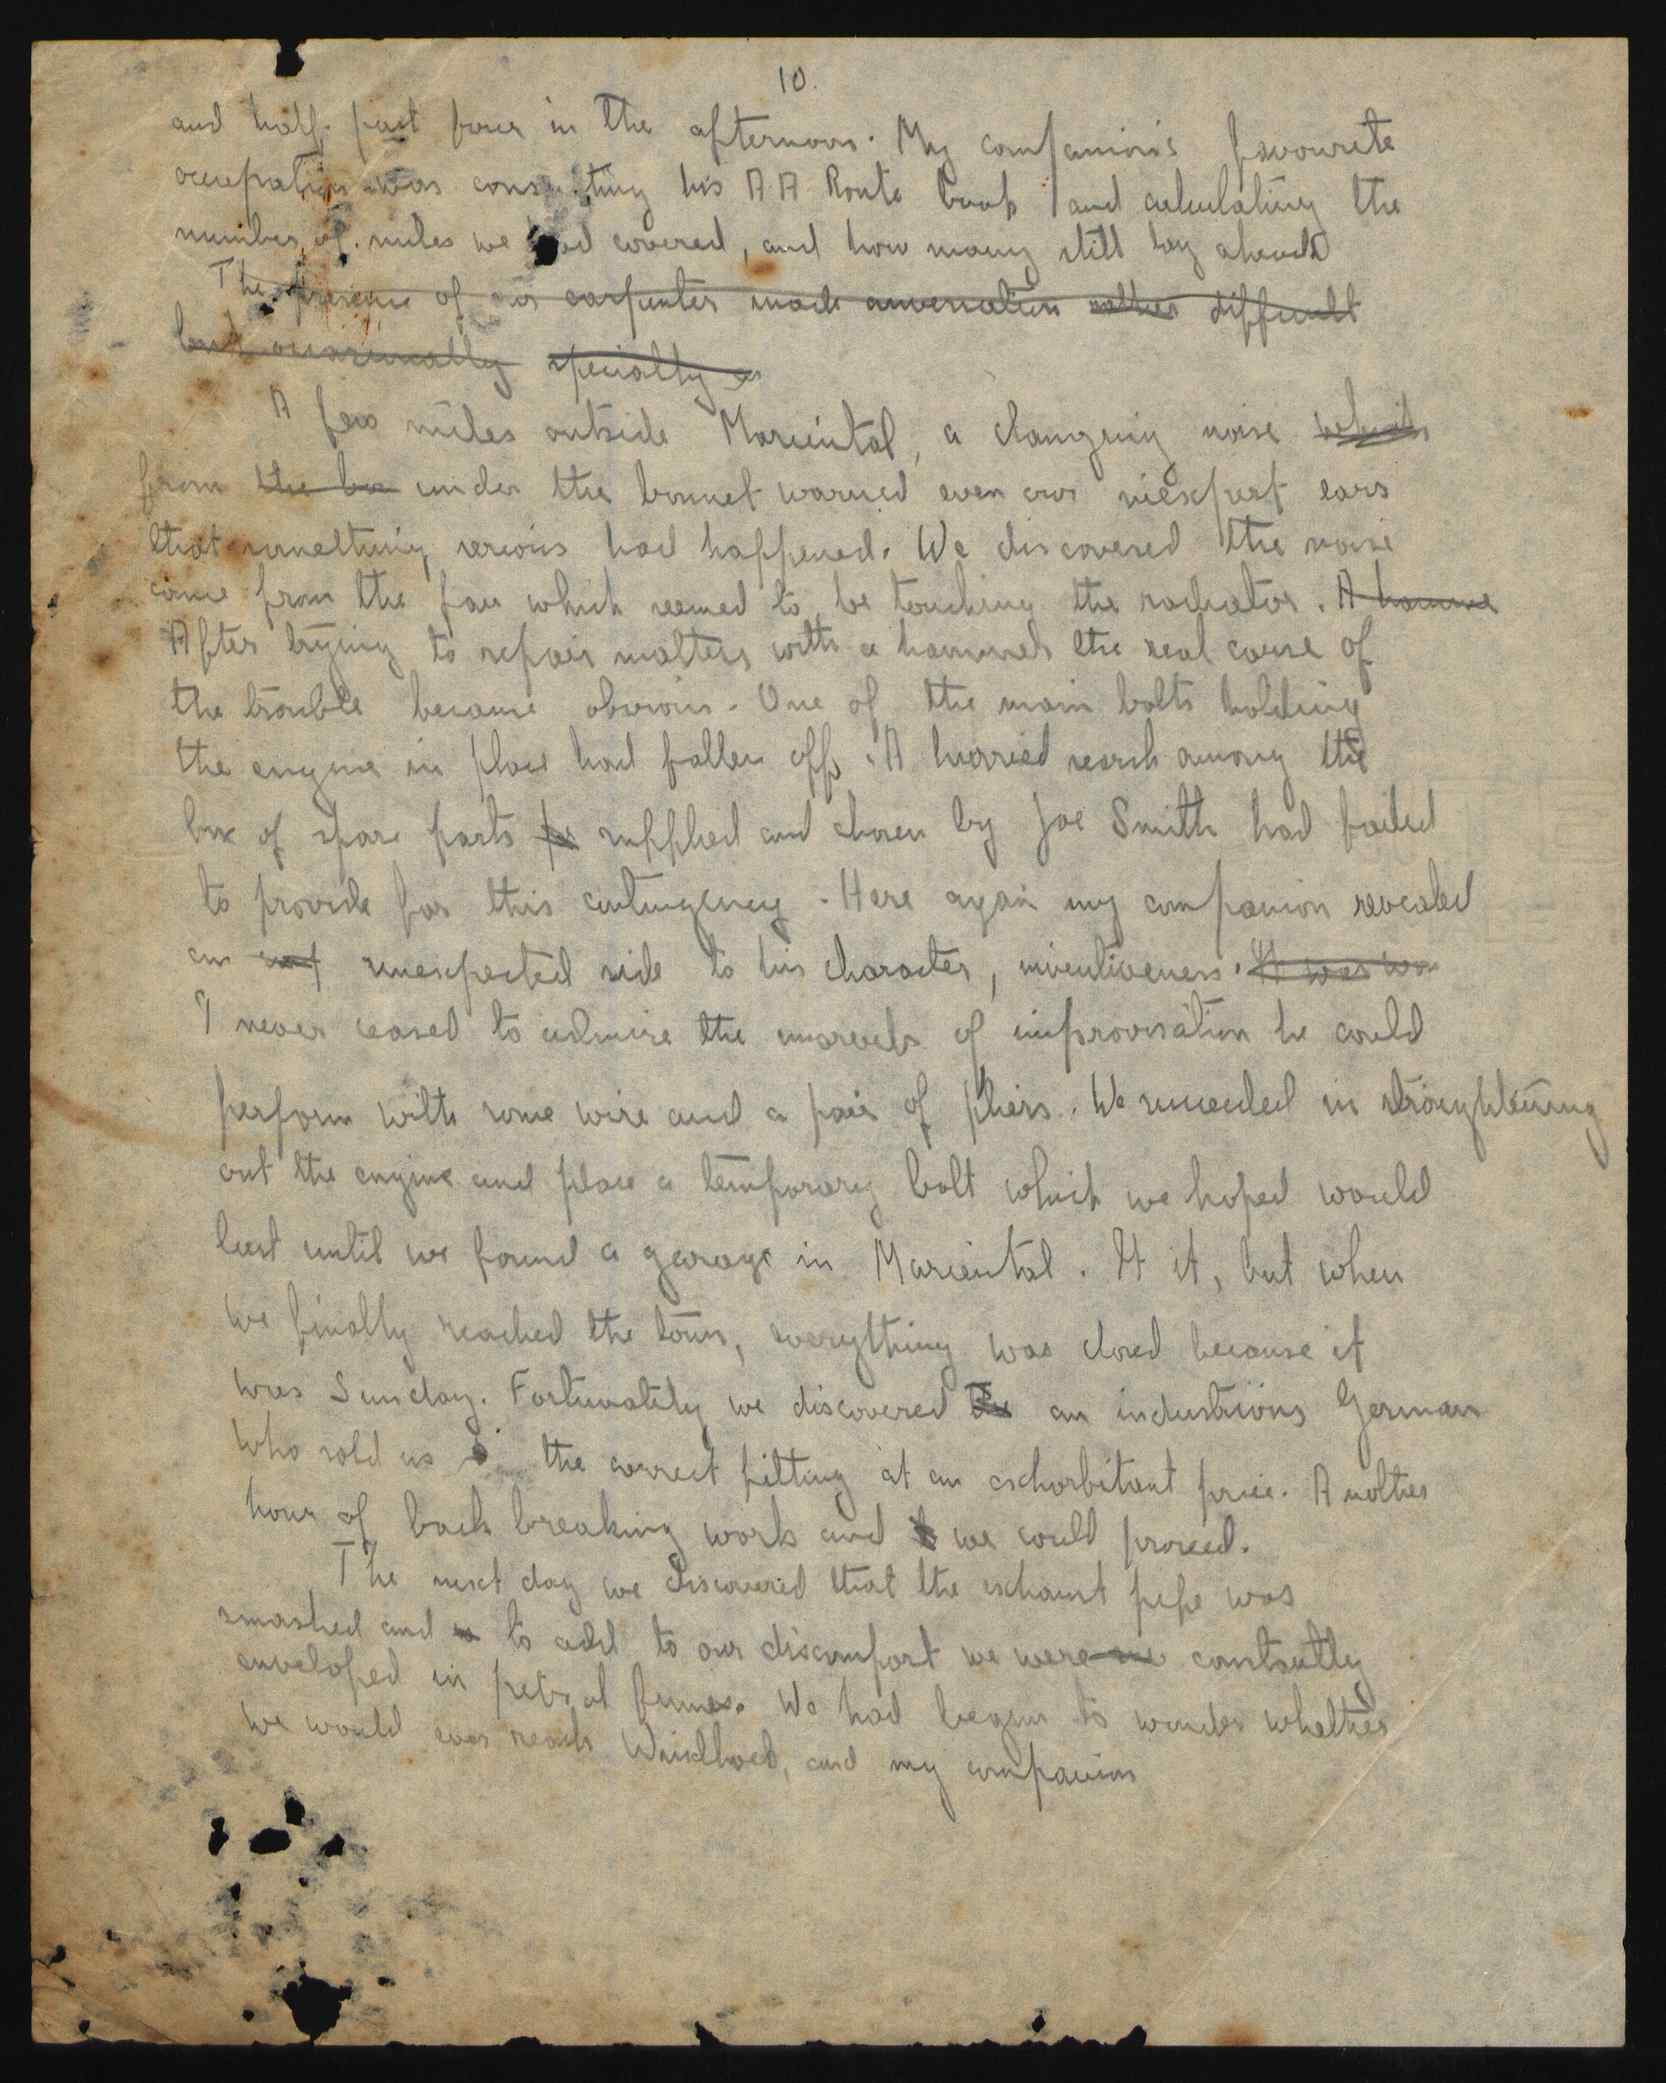 10.
and half past four in the afternoon. My companion's favourite
occupation was consulting his AA Route book and calculating the
number of miles we had covered, and how many still lay ahead
The presence of our carpenter made conversation rather difficult
but occasionally specially
A few miles outside Mariental, a clanging noise which
from the bo under the bonnet warned even our inexpert ears
that something serious had happened. We discovered the noise
came from the fan which seemed to be touching the radiator. A hamme
After trying to repair matters with a hammer the real cause of
the trouble became obvious. One of the main bolts holding
the engine in place had fallen off. A hurried search among the
box of spare parts for supplied and chosen by Joe Smith had failed
to provide for this contingency. Here again my companion revealed
an unexpected side to his character, inventiveness. It was
I never ceased to admire the marvels of improvisation he could
perform with some wire and a pair of pliers. We succeeded in straightening
out the engine and place a temporary bolt which we hoped would
last until we found a garage in Mariental. It it, but when
we finally reached the town, everything was closed because it
was Sunday. Fortunately we discovered the an industrious German
who sold us the correct fitting at an exhorbitant price. Another
hour of back breaking work and we could proceed.
The next day we discovered that the exhaust pipe was
smashed and to add to our discomfort we were constantly
enveloped in petrol fumes. We had begun to wonder whether
we would ever reach Windhoek, and my companion